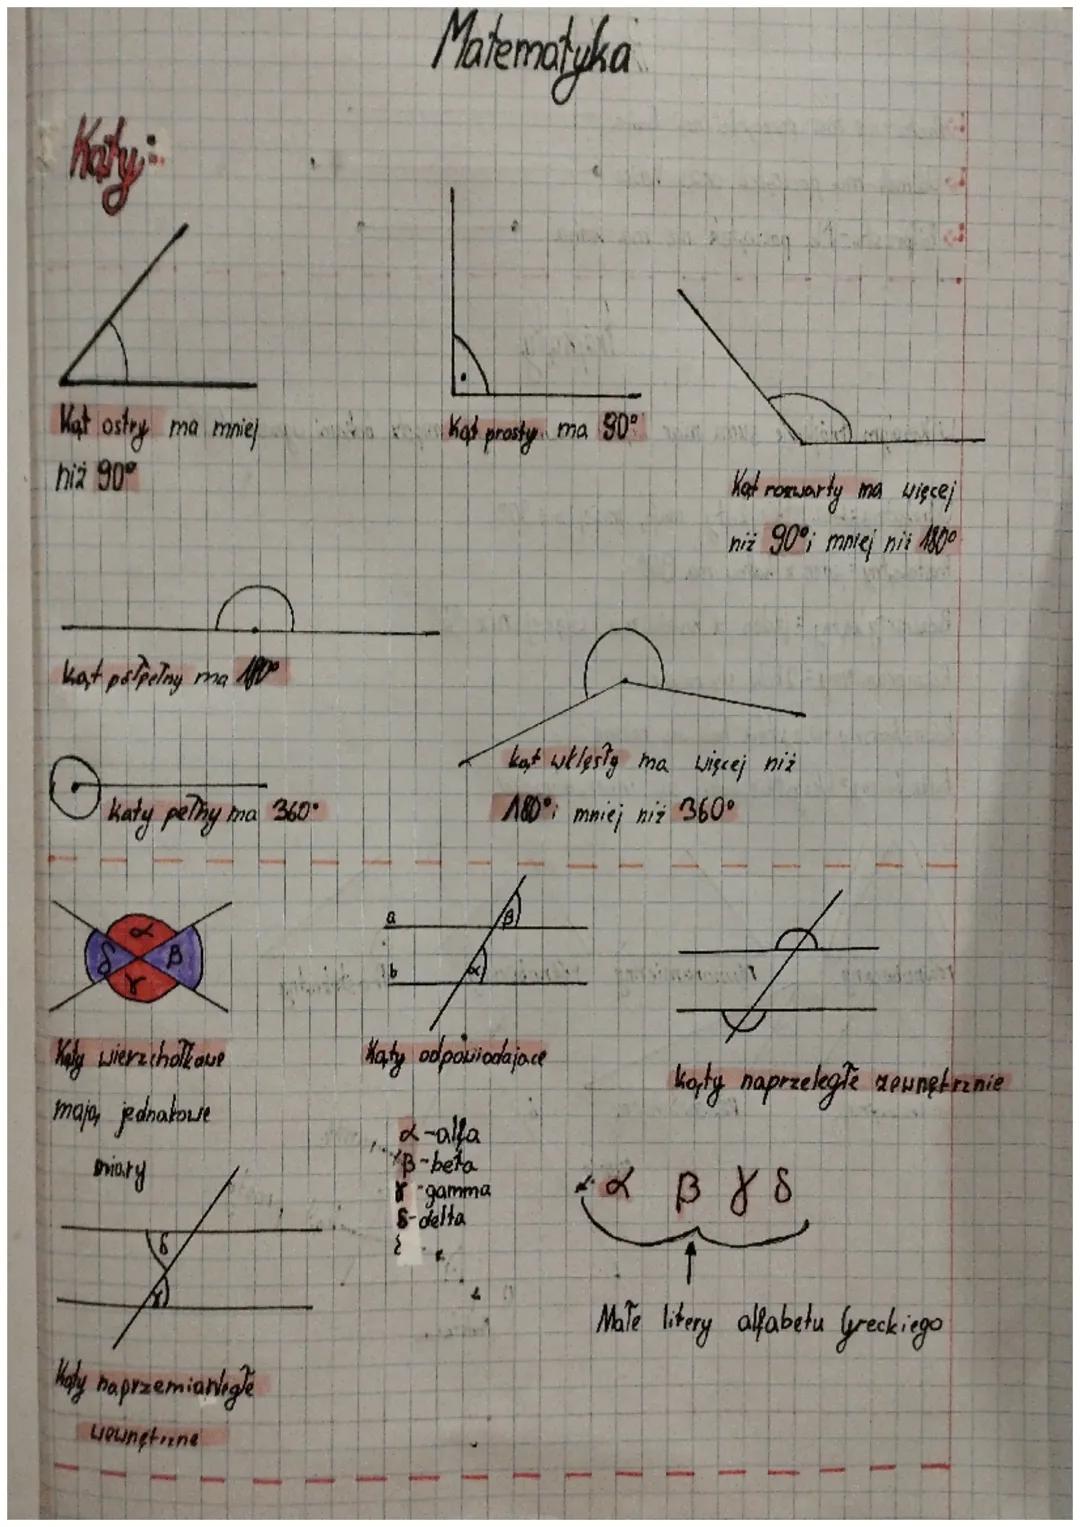 Matematyka
Kąty:
Kąt ostry ma mniej
niż 90°
Kąt prosty ma 90°
Kąt rozwarty ma więcej
niż 90° i mniej niż 180°
kąt półpełny ma 180°
kąt wklęsły ma więcej niż
180° i mniej niż 360°
kąty pełny ma 360°
α
β
γ
δ
Kąty wierzchołkowe
mają jednakowe
miary
a
β
b
α
Kąty odpowiadające
kąty naprzeległe zewnętrznie
α-alfa
β-beta
γ-gamma
δ-delta
α β γ δ
Małe litery alfabetu Greckiego
δ
γ
Kąty naprzemianległe
wewnętrzne